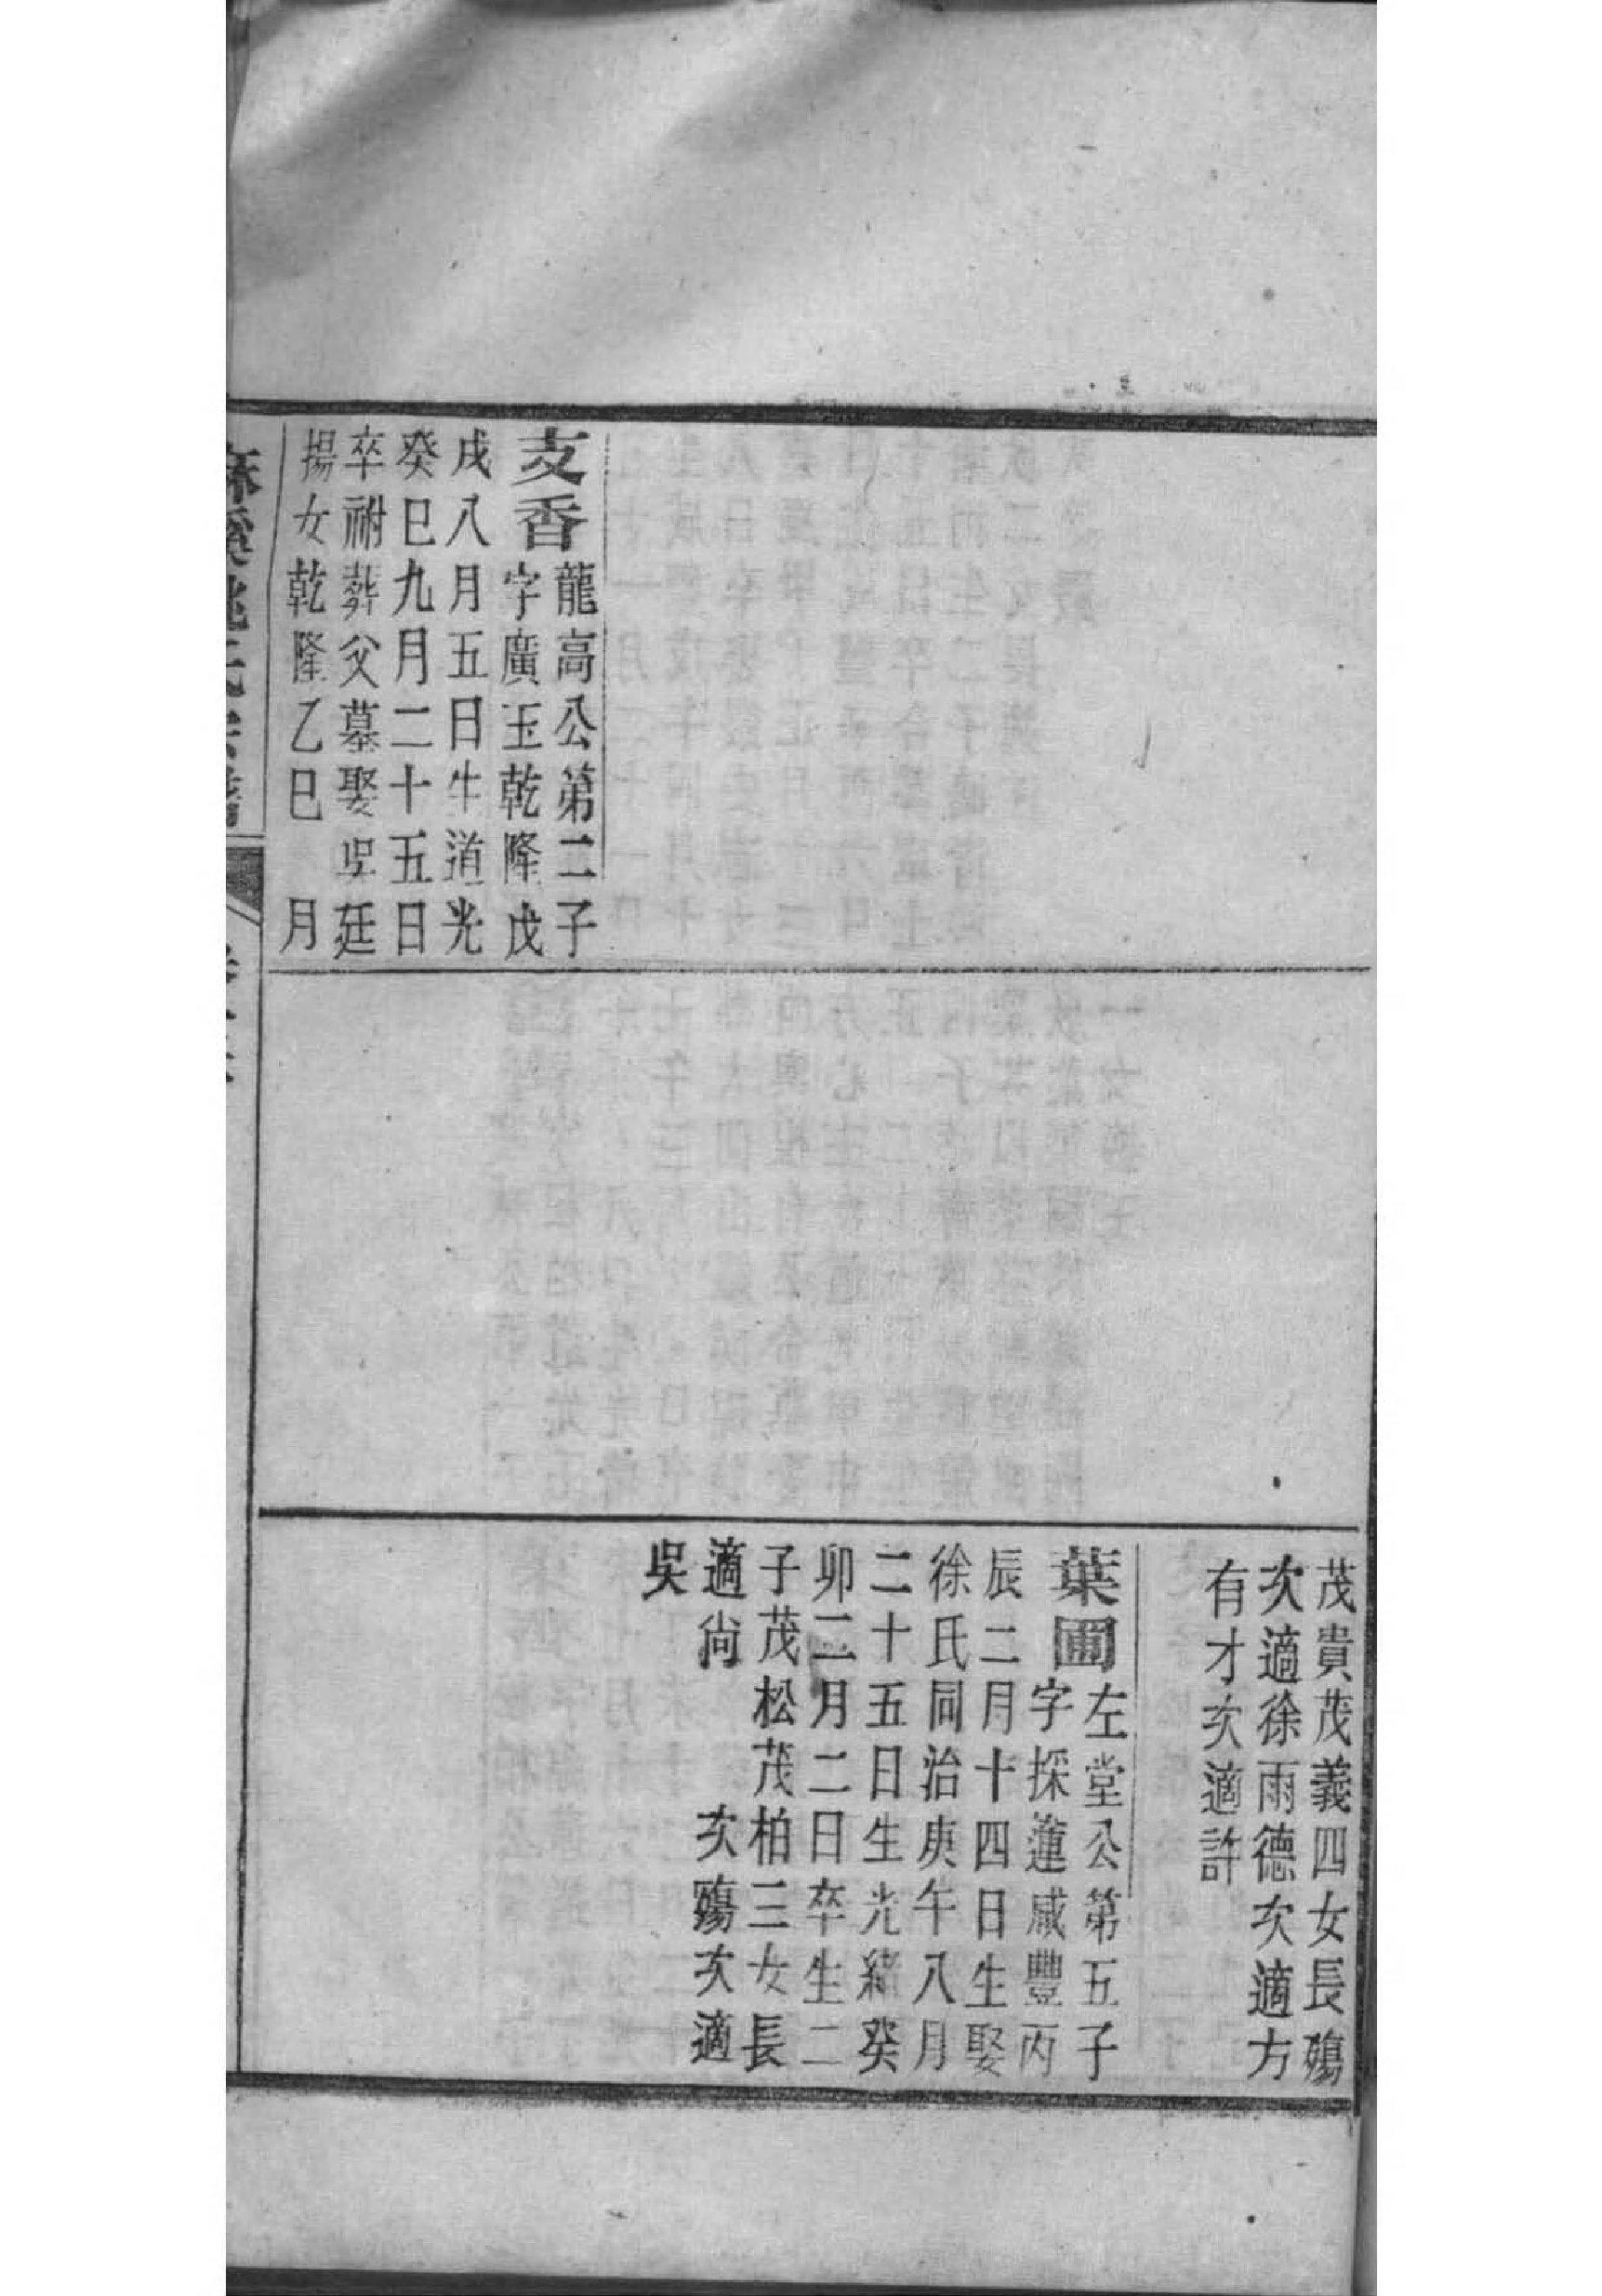 支香
龍高公第二子
字廣玉乾隆戊
戌八月五日生道光
癸巳九月二十五日
卒祔葬父墓娶吳廷
揚女乾隆乙巳 月
茂貴茂義四女長殤
次適徐雨德次適方
有才次適許
葉圃
左堂公第五子
字採蓮咸豐丙
辰二月十四日生娶
徐氏同治庚午八月
二十五日生光緒癸
卯二月二日卒生二
子茂松茂柏三女長
適尙 次殤次適
吳